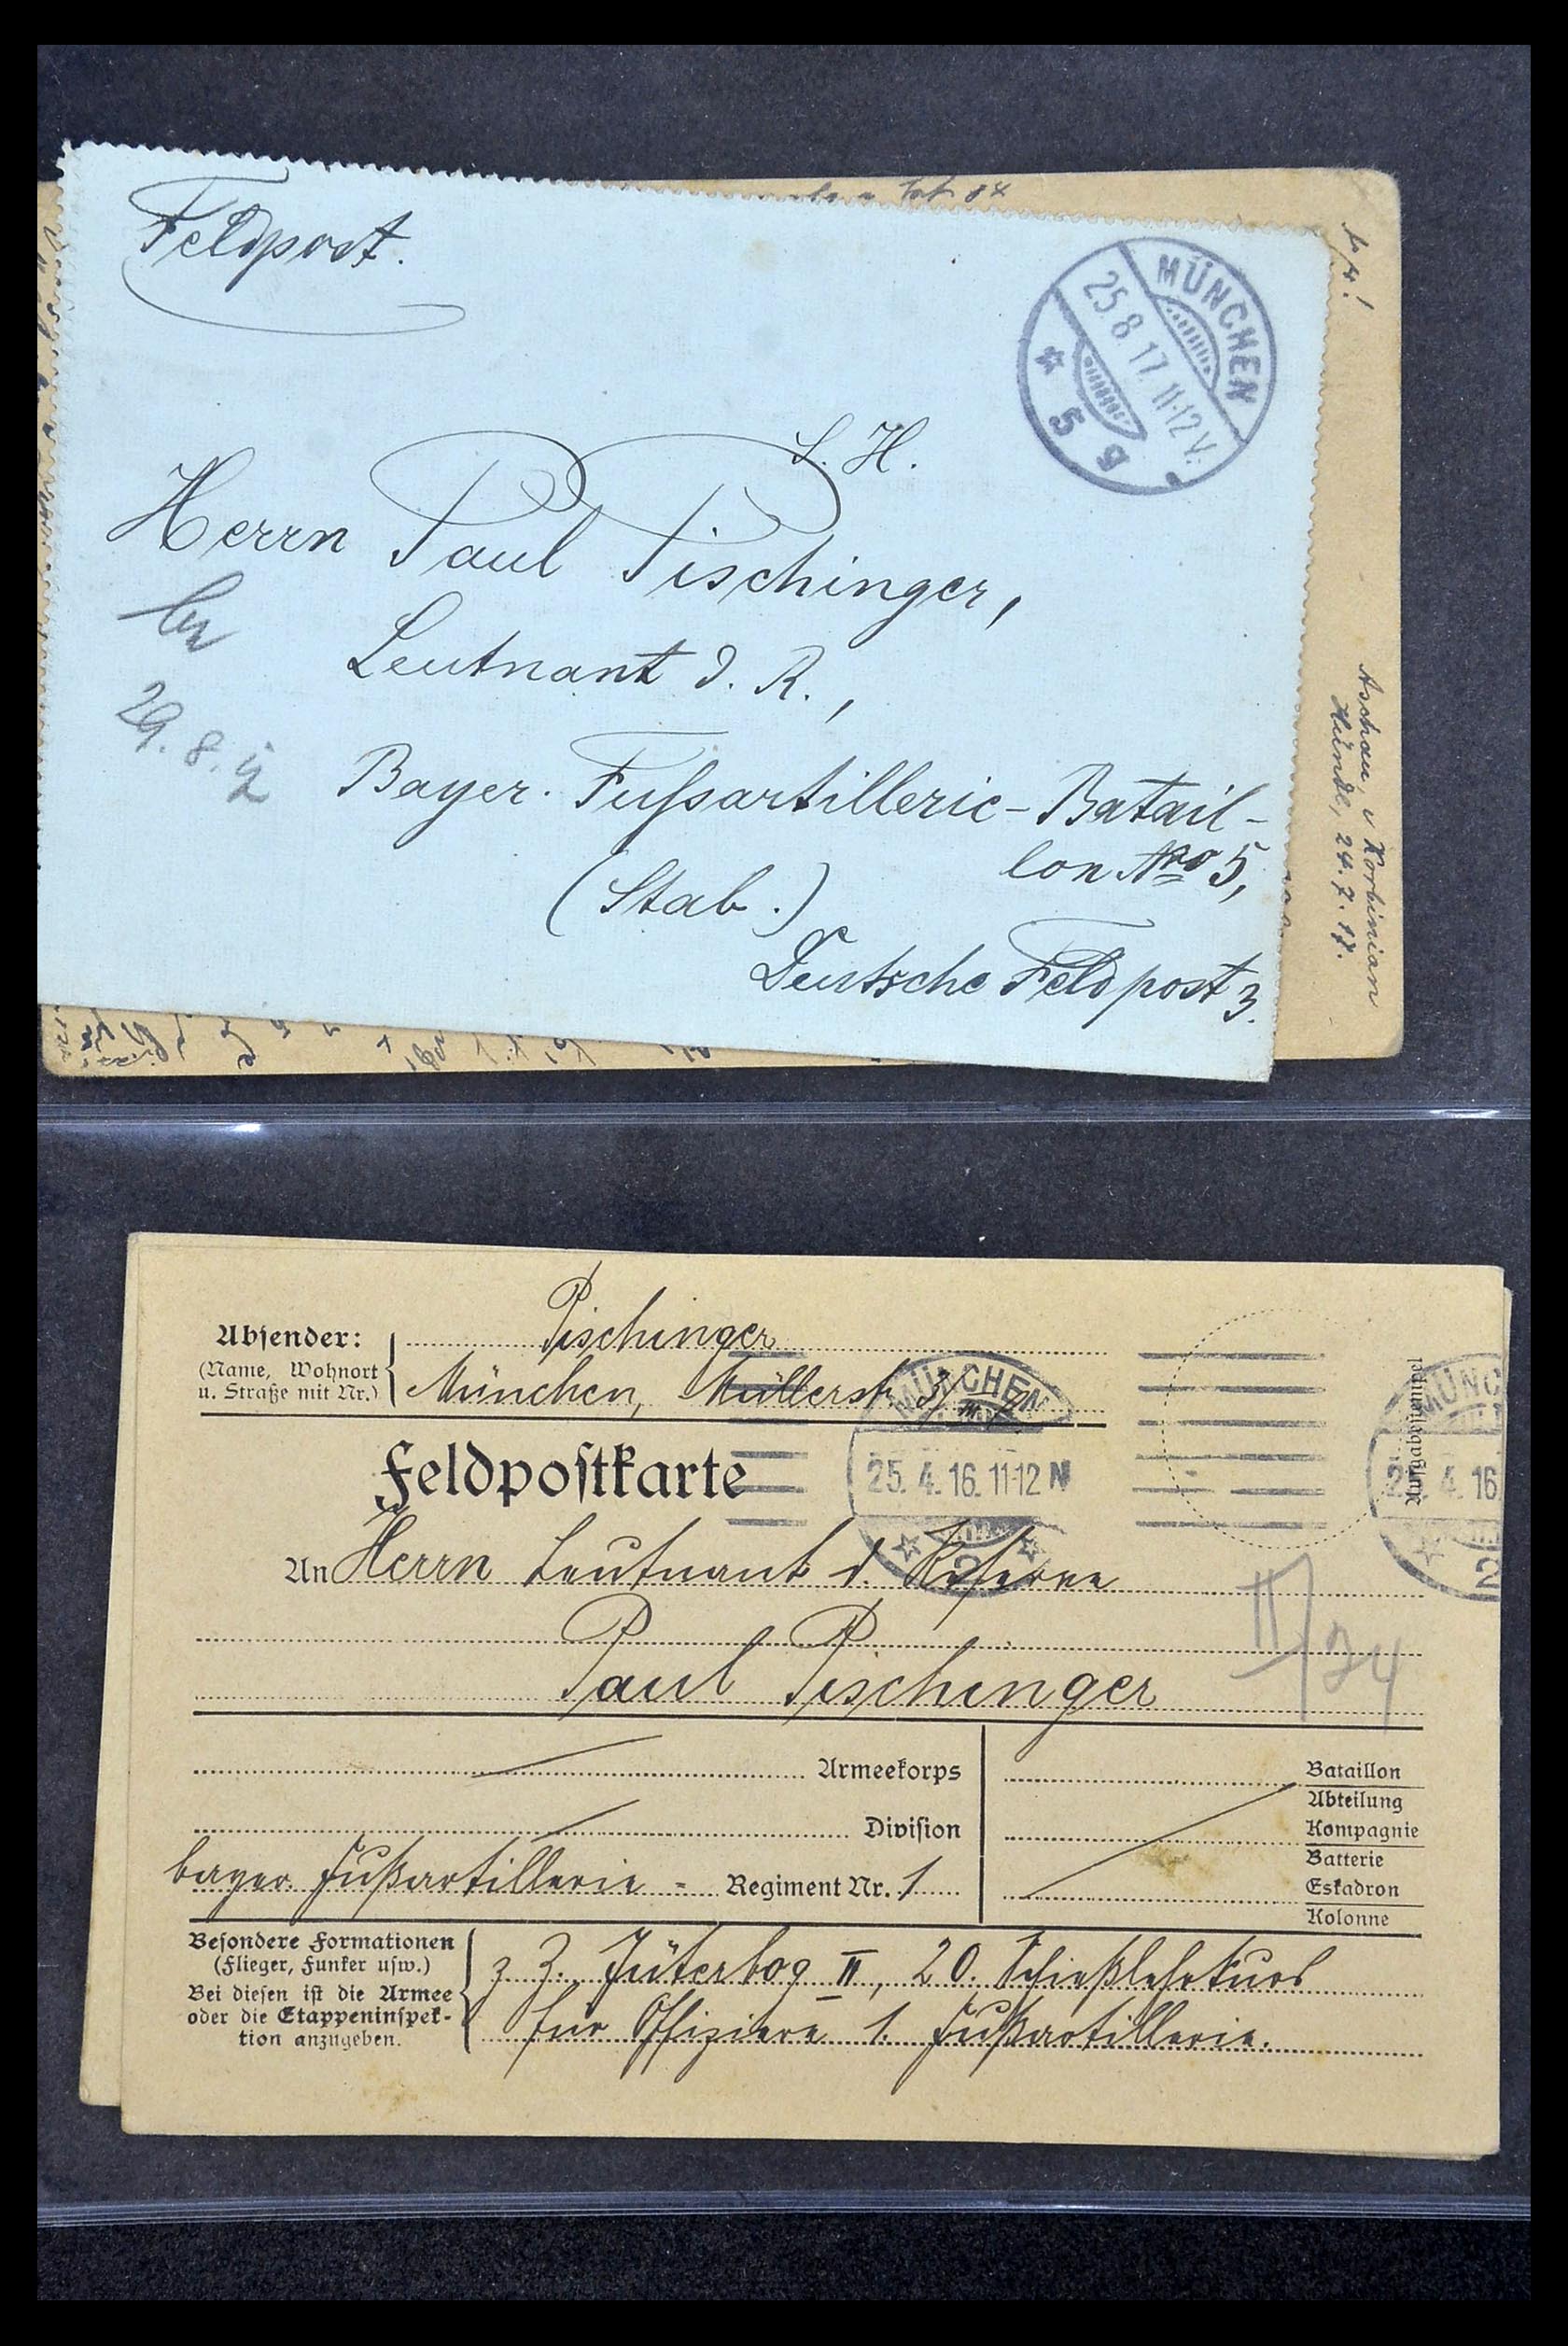 Feldpost.
MÜNCHEN
25.8.17. 11-12 V.
* 5 B
S. H.
Herrn Paul Pischinger,
Leutnant d. R.,
29. 8. 17
Bayer. Fußartillerie-Batail-
lon Nro 5,
(Stab.)
Deutsche Feldpost 3.
Aschau, v Korbinian
24.7.17.
Absender:
(Name, Wohnort
u. Straße mit Nr.)
Pischinger
München, Müllerstr. 3/
MÜNCHEN
25. 4. 16. 11-12 N
* 2 *
MÜNC
2 . 4. 16
2
Aufgabestempel
Feldpostkarte
An Herrn Leutnant d. Reserve
Paul Pischinger
II/34
Armeekorps
Division
bayer. Fußartillerie - Regiment Nr. 1
Bataillon
Abteilung
Kompagnie
Batterie
Eskadron
Kolonne
Besondere Formationen
(Flieger, Funker usw.)
Bei diesen ist die Armee
oder die Etappeninspek-
tion anzugeben.
z. Z. Jüterbog II, 20. Schießlehrkurs
für Offiziere d. Fußartillerie.